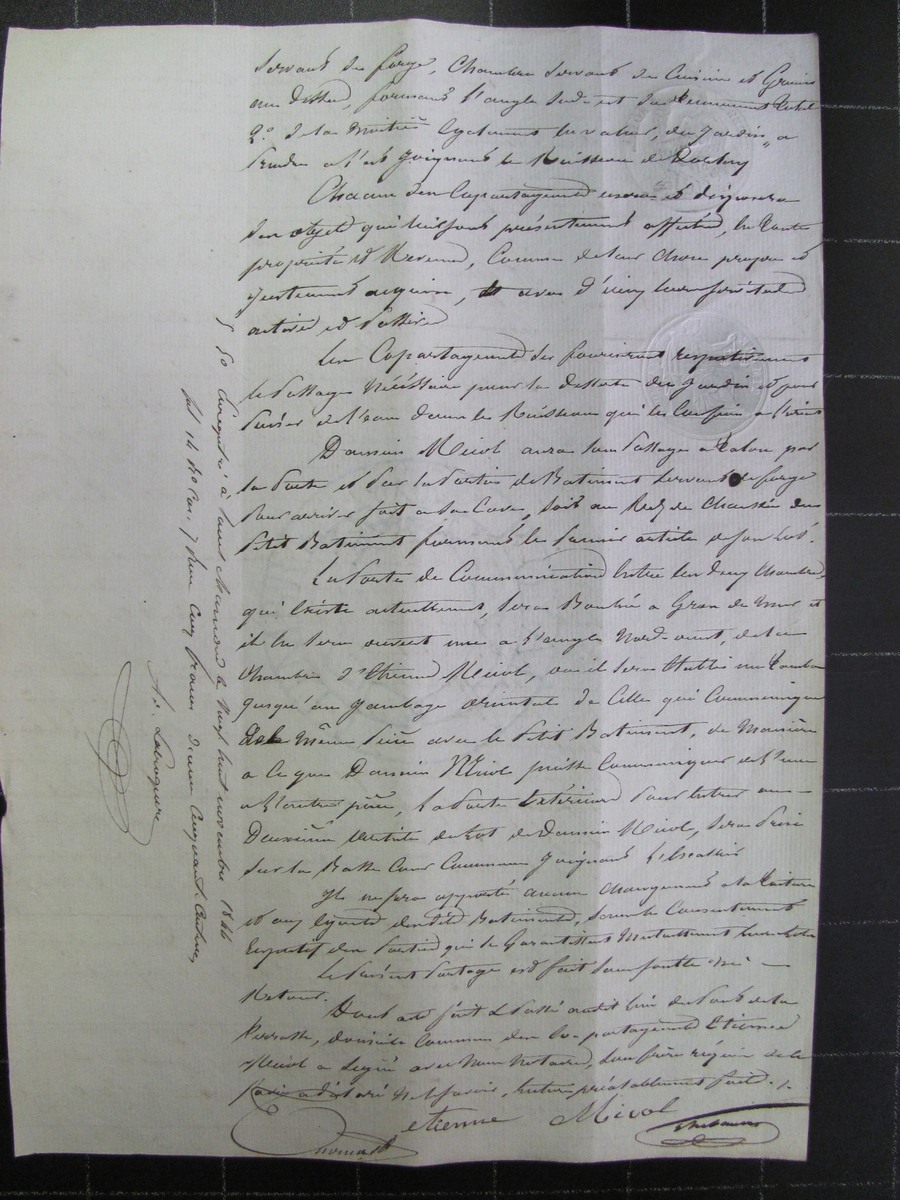 servant de forge, Chambre servant de Cuisine et Grenier
au dessus, formant l'angle Sud-est du
2.o de la moitié également en valeur, du Jardin, a
prendre a l'est joignant le Ruisseau de
Chacun des Copartageants usera et disposera
des objets qui lui sont présentement affectés, en toute
propriété et Revenu, Comme de leur chose propre et
justement acquise, avec
active et passive
Les Copartageants se fourniront respectivement
le passage Nécéssaire pour la desserte du Jardin et pour
puiser de l'eau dans le Ruisseau qui les Confine a l'orient
Damien Mivol aura son passage a talon par
la porte et par la partie de Batiment servant de forge
pour arriver soit a sa Cave, soit au Rez de Chaussée du
petit Batiment formant le premier article de son lot.
La porte de Communication entre les deux Chambres,
qui existe actuellement, sera Bouchée a Gros de mur et
il en sera ouvert une a l'angle Nord-ouest, de la
Chambre d'Etienne Mivol, ou il sera établi un
jusqu'au jambage oriental de Celle qui Communique
de la même pièce avec le petit Batiment, de Manière
a Ce que Damien Mivol puisse Communiquer de l'une
a l'autre pièce, la porte Extérieure pour entrer au
Deuxième article du lot de Damien Mivol, sera prise
sur la Basse Cour Commune joignant l'escalier
Il ne sera apporté aucun changement a la toiture
et aux égouts desdits Batiments, sans le Consentement
respectif des parties qui se Garantissent Mutuellement leurs lots
Le présent partage est fait sans soulte ni
Retour.
Dont acte fait et passé audit lieu du
domicile Commun des Co-partageants Etienne
Mivol a signé avec nous Notaire, son frère requis de le
faire a déclaré ne le savoir, lecture préalablement faite.
etienne Mivol
Enregistré à Saint le vingt huit novembre 1844
fol. 14 Ro Cas. 7 Reçu Cinq francs Cinquante Centimes